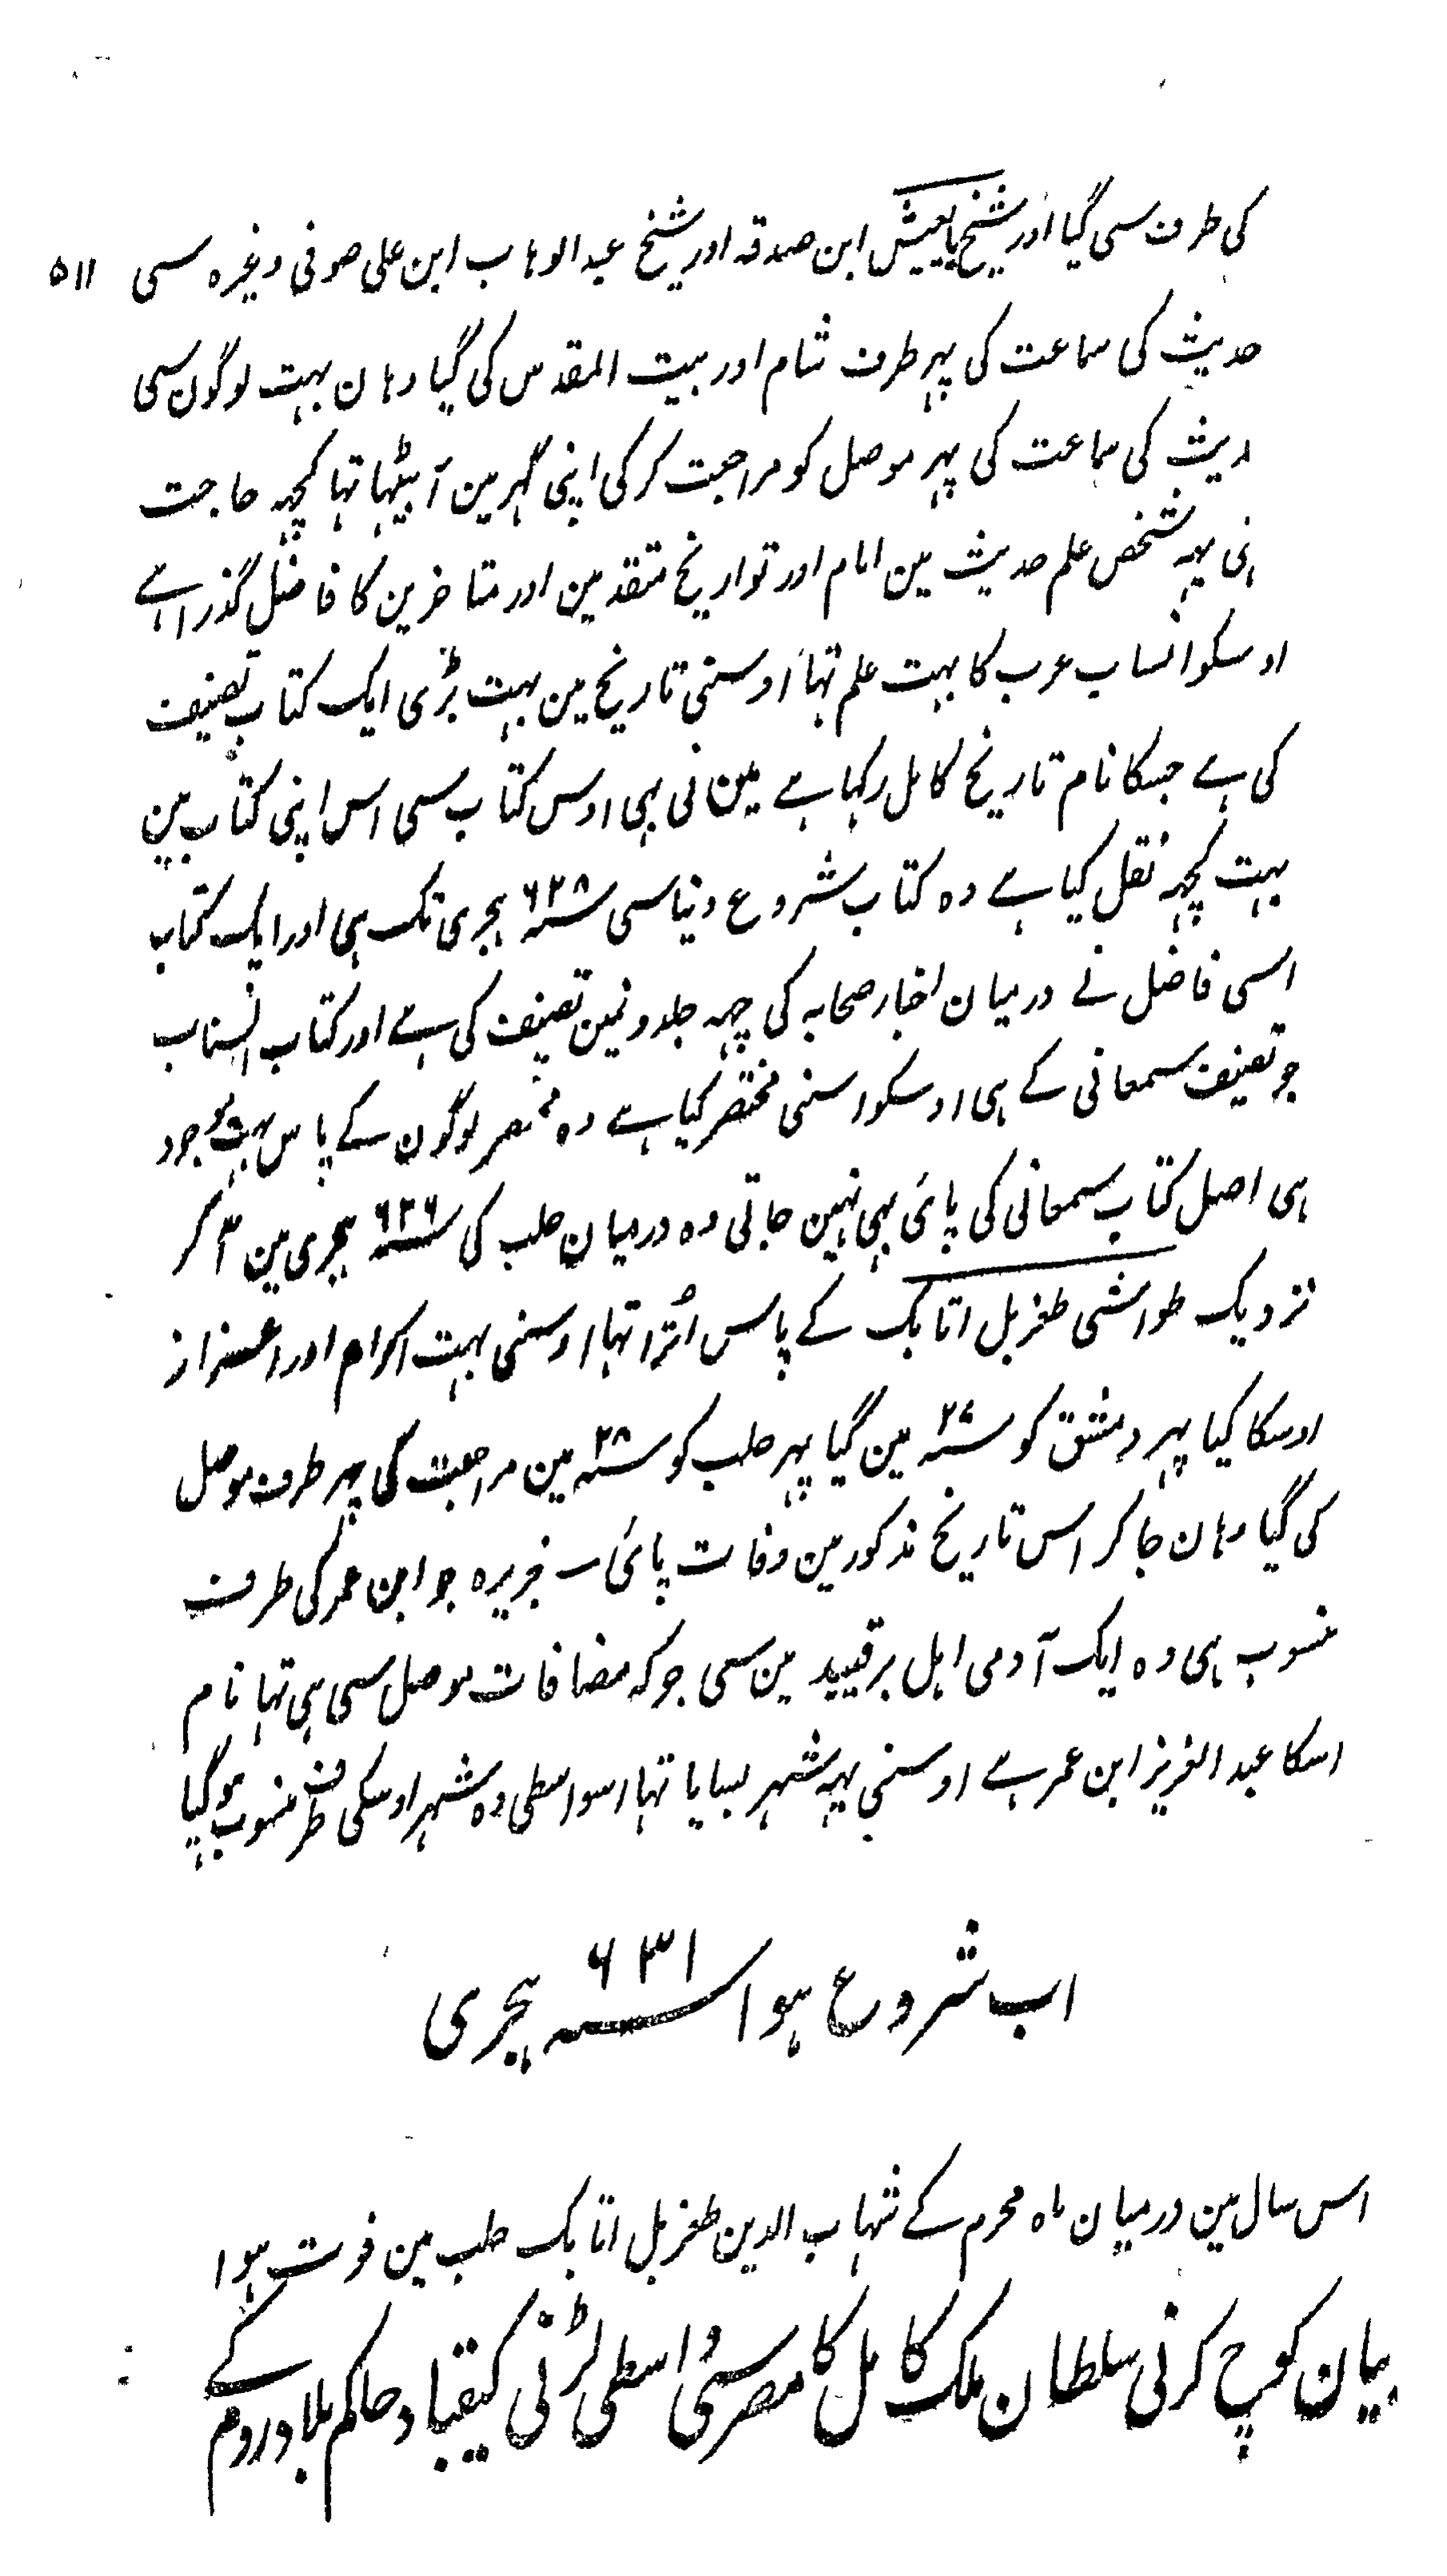 ۵۱۱
کی طرف سی گیا اور شیخ یعیش ابن صدقہ اور شیخ عبد الوہاب ابن علی صوفی وغیرہ سی
حدیث کی سماعت کی پہر طرف شام اور بیت المقدس کی گیا وہان بہت لوگون سی
دیث کی سماعت کی پہر موصل کو مراجعت کرکی اپنی گہر مین آ بیٹہا تہا کچہہ حاجت
نہی یہہ شخص علم حدیث مین امام اور تواریخ متقدمین اور متاخرین کا فاضل گذرا ہے
اوسکو انساب عرب کا بہت علم تہا اوسنی تاریخ مین بہت بڑی ایک کتاب تصنیف
کی ہے جسکا نام تاریخ کامل رکہا ہے مین نی بہی اوس کتاب سی اس اپنی کتاب مین
بہت کچہہ نقل کیا ہے وہ کتاب شروع دنیا سی سنہ ۶۲۸ ہجری تک ہی اور ایک کتاب
اسی فاضل نے درمیان اخبار صحابہ کی چہہ جلدونمین تصنیف کی ہے اور کتاب انساب
جو تصنیف سمعانی کے ہی اوسکو اسنی مختصر کیا ہے وہ مختصر لوگون کے پاس بہت موجود
ہی اصل کتاب سمعانی کی پائی بہی نہین جاتی وہ درمیان حلب کی سنہ ۶۲۶ ہجری مین آکر
نزدیک طواشی طغربل اتابک کے پاس اُترا تہا اوسنی بہت اکرام اور اعزاز
اوسکا کیا پہر دمشق کو سنہ ۲۷ مین گیا پہر حلب کو سنہ ۲۸ مین مراجعت کی پہر طرف موصل
کی گیا وہان جاکر اس تاریخ مذکور مین وفات پائی ـ جزیرہ جو ابن عمر کی طرف
منسوب ہی وہ ایک آدمی اہل برقیید مین سی جو کہ مضافات موصل سی ہی تہا نام
اسکا عبد العزیز ابن عمر ہے اوسنی یہہ شہر بسایا تہا اسواسطی وہ شہر اوسکی طرف منسوب ہوگیا
اب شروع ہوا سنہ ۶۳۱ ہجری
اس سال مین درمیان ماہ محرم کے شہاب الدین طغربل اتابک حلب مین فوت ہوا
بیان کوچ کرنی سلطان ملک کامل کا مصر سی واسطی لڑنی کیقباد حاکم بلاد روم کے